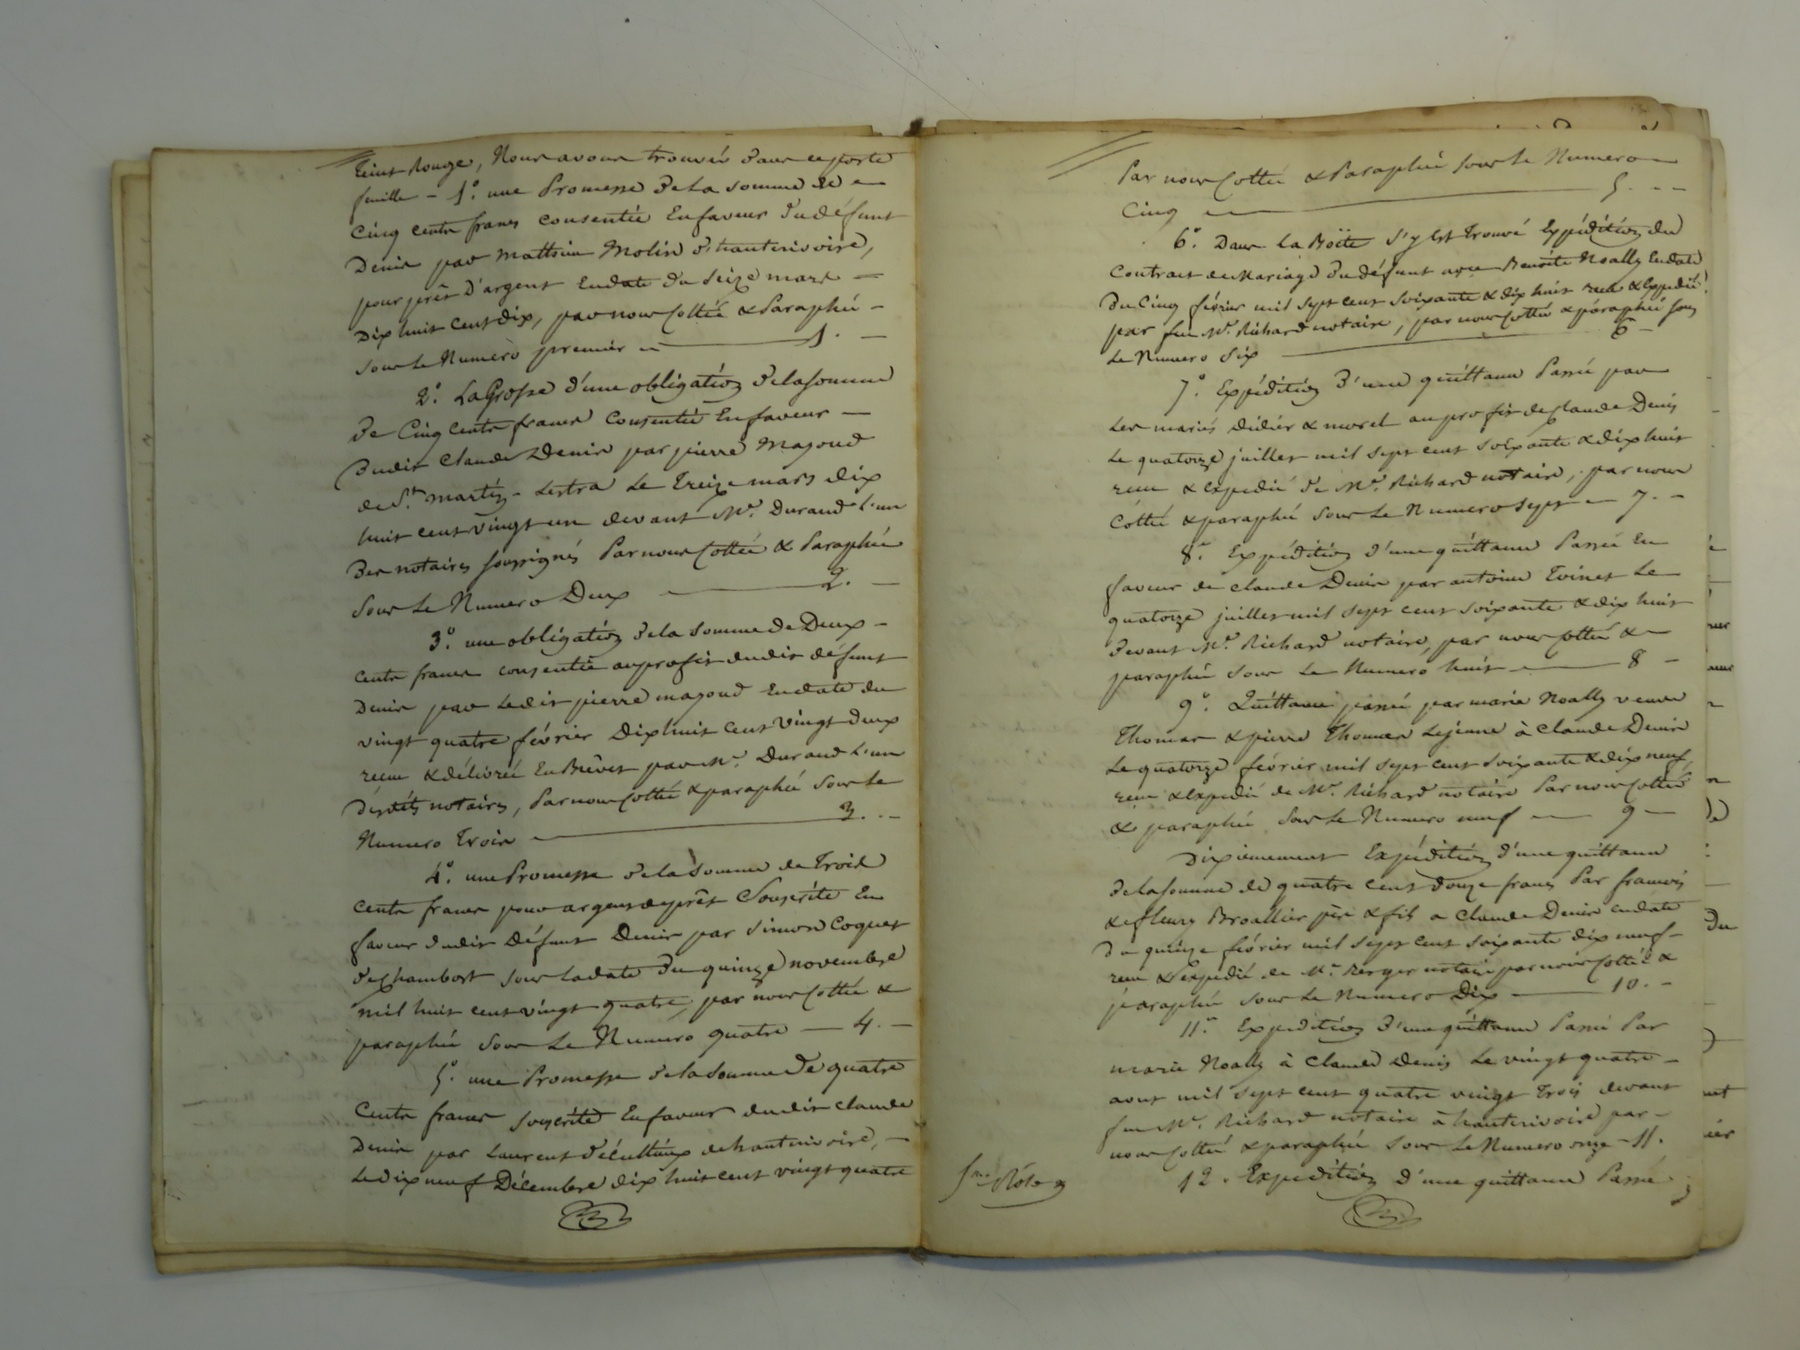 teint Rouge, Nous avons trouvés dans ce porte
feuille – 1.° une Promesse de La somme de
Cinq cents francs consentie En faveur du défunt
Denis par Mathieu Molin d'hauterivoire,
pour prêt d'argent En date du Seize mars –
Dix huit Cent dix, par nous Cottée & Paraphée –
sous Le Numero premier – 1. –
2.° La Grosse d'une obligation de la somme
De Cinq cents francs Consentie En faveur –
dudit Claude Denis par pierre Magoud
de St. martin – Lestra Le Treize mars dix
huit cent vingt un devant Me. Durand L'un
des notaires soussignés Par nous Cottée & Paraphée
Sous Le Numero Deux – 2. –
3.° une obligation de la somme de Deux –
Cents francs consentie au profit dudit défunt
Denis par Ledit pierre magoud En date du
vingt quatre février Dix huit Cent Vingt deux
reçue & délivrée En Brêvet par Me. Durand L'un
desdits notaires, Par nous Cottée & paraphée Sous Le
Numero Trois – 3. –
4.° une Promesse de la Somme de Trois
Cents francs pour argent de prêt Souscrite En
faveur dudit Défunt Denis par Simon Coquet
de Chambost sous la date du quinze novembre
mil huit cent vingt quatre, par nous Cottée &
paraphée Sous Le Numero quatre – 4. –
5.° une Promesse de la Somme De quatre
Cents francs souscrite En faveur dudit Claude
Denis par Laurent de hauterivoire, –
Le dix neuf Décembre dix huit cent vingt quatre
Par nous Cottée & Paraphée sous Le Numero –
Cinq – 5. –
6.° Dans La Boëte s'y Est Trouvé Expédition du
Contrat de Mariage du défunt avec Benoite Noally En date
Du Cinq février mil sept cent soixante & dix huit reçu & Expédié
par feu Me. Richard notaire, par nous Cotté & paraphé sous
Le Numero Six – 6 –
7.° Expédition d'une quittance Passée par
Les mariés Didier & morel au profit de Claude Denis
Le quatorze juillet mil sept cent soixante & dix huit
reçue & expediée de Me. Richard notaire, par nous
Cottée & paraphée Sous Le Numero sept – 7. –
8.° Expédition d'une quittance Passée En
faveur de Claude Denis par antoine Evinet Le
quatorze juillet mil sept cent soixante & dix huit
devant Me. Richard notaire, par nous Cottée & –
paraphée Sous Le Numero huit – 8 –
9.° Quittance passée par marie Noally veuve
Thomas & pierre Thomas Lejeune à Claude Denis
Le quatorze février mil sept cent soixante & dix neuf,
reçue & Expediée de Me. Richard notaire Par nous Cottée
& paraphée Sous Le Numero neuf – 9 –
Dixiemement Expédition d'une quittance
de la somme de quatre cent douze francs Par francois
& fleury Broallier père & fils a Claude Denis en date
du quinze février mil sept cent soixante dix neuf –
reçue & Expediée de Me. Berger notaire par nous Cottée &
paraphée sous Le Numero Dix – 10. –
11.° Expedition d'une quittance Passée Par
marie Noally à Claude Denis Le vingt quatre –
aout mil sept cent quatre vingt Trois devant
feu Me. Richard notaire à hauterivoire par –
nous Cottée & paraphée Sous Le Numero onze – 11.
5me. Rôle
12. Expedition d'une quittance Passée